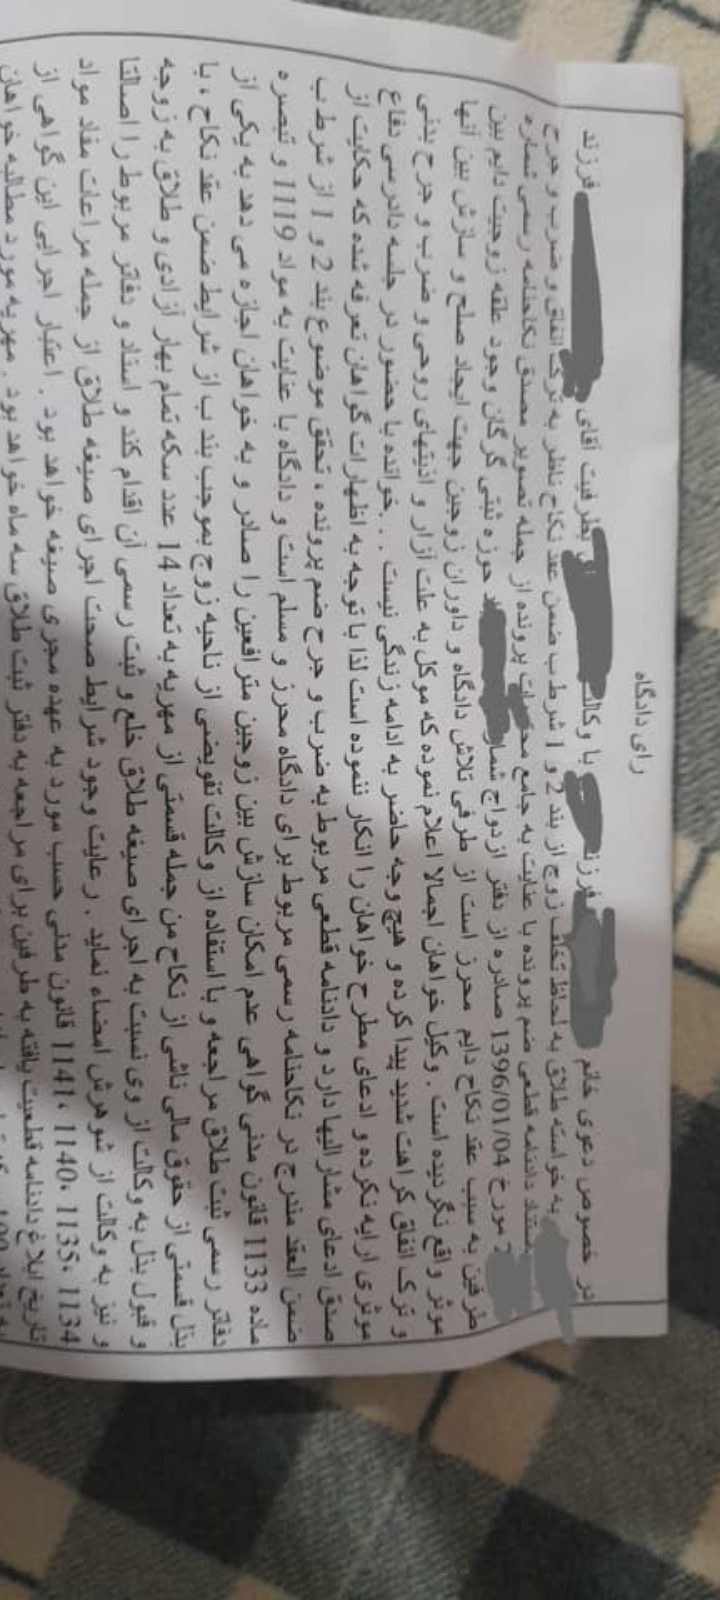 رای دادگاه
در خصوص دعوی خانم فرزند با وکالت بطرفیت آقای فرزند
به خواسته طلاق به لحاظ تخلف زوج از بند 2 و 1 شرط ب ضمن عقد نکاح ناظر به ترک انفاق و ضرب و جرح
مستند دادنامه قطعی ضم پرونده با عنایت به جامع پرونده از جمله تصویر مصدق نکاحنامه رسمی شماره
مورخ 1396/01/04 صادره از دفتر ازدواج حوزه ثبتی گرگان وجود علقه زوجیت دایم بین
طرفین به سبب عقد نکاح دایم محرز است از طرفی تلاش دادگاه و داوران زوجین جهت ایجاد صلح و سازش بین آنها
موثر واقع نگردیده است . وکیل خواهان اجمالا اعلام نموده که موکل به علت آزار و اذیتهای روحی و ضرب و جرح بدنی
و ترک انفاق کراهت شدید پیدا کرده و هیچ وجه حاضر به ادامه زندگی نیست . . خوانده با حضور در جلسه دادرسی دفاع
موثری ارایه نکرده و ادعای مطرح خواهان را انکار ننموده است لذا با توجه به اظهارات گواهان تعرفه شده که حکایت از
صدق ادعای مشارالیها دارد و دادنامه قطعی مربوط به ضرب و جرح ضم پرونده ، تحقق موضوع بند 2 و 1 از شرط ب
ضمن العقد مندرج در نکاحنامه رسمی مربوط برای دادگاه محرز و مسلم است و دادگاه با عنایت به مواد 1119 و تبصره
ماده 1133 قانون مدنی گواهی عدم امکان سازش بین زوجین مترافعین را صادر و به خواهان اجازه می دهد به یکی از
دفاتر رسمی ثبت طلاق مراجعه و با استفاده از وکالت تفویضی از ناحیه زوج بموجب بند ب از شرایط ضمن عقد نکاح ، با
بذل قسمتی از حقوق مالی ناشی از نکاح من جمله قسمتی از مهریه به تعداد 14 عدد سکه تمام بهار آزادی و طلاق به زوجه
و قبول بذل به وکالت از وی نسبت به اجرای صیغه طلاق خلع و ثبت رسمی آن اقدام کند و اسناد و دفاتر مربوط را اصالتا
و نیز به وکالت از شوهرش امضاء نماید . رعایت وجود شرایط صحت اجرای صیغه طلاق از جمله مراعات مفاد مواد
1134 ،1135 ،1140 ،1141 قانون مدنی حسب مورد به عهده مجری صیغه خواهد بود . اعتبار اجرایی این گواهی از
تاریخ ابلاغ دادنامه قطعیت یافته به طرفین برای مراجعه به دفتر ثبت طلاق سه ماه خواهد بود . مهریه مورد مطالبه خواهان
100